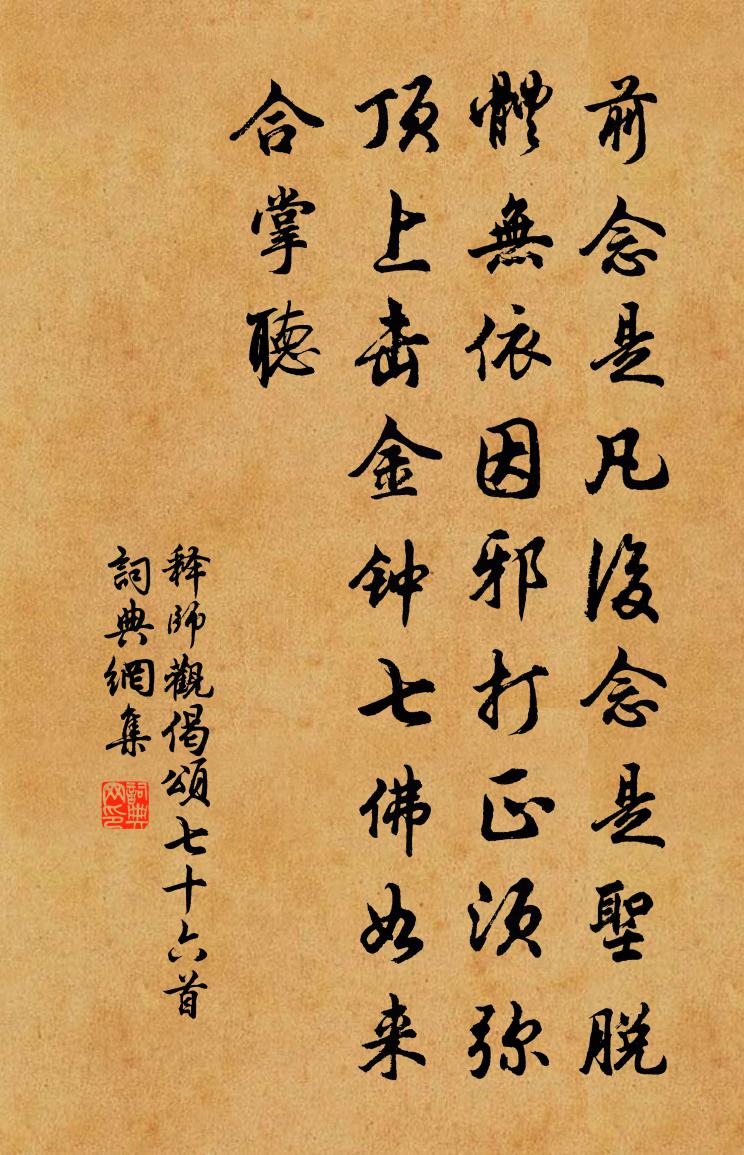 前念是凡後念是聖脱
體無依因邪打正須弥
頂上击金钟七佛如来
合掌聽
释師觀偈頌七十六首
詞典網集
詞典网印